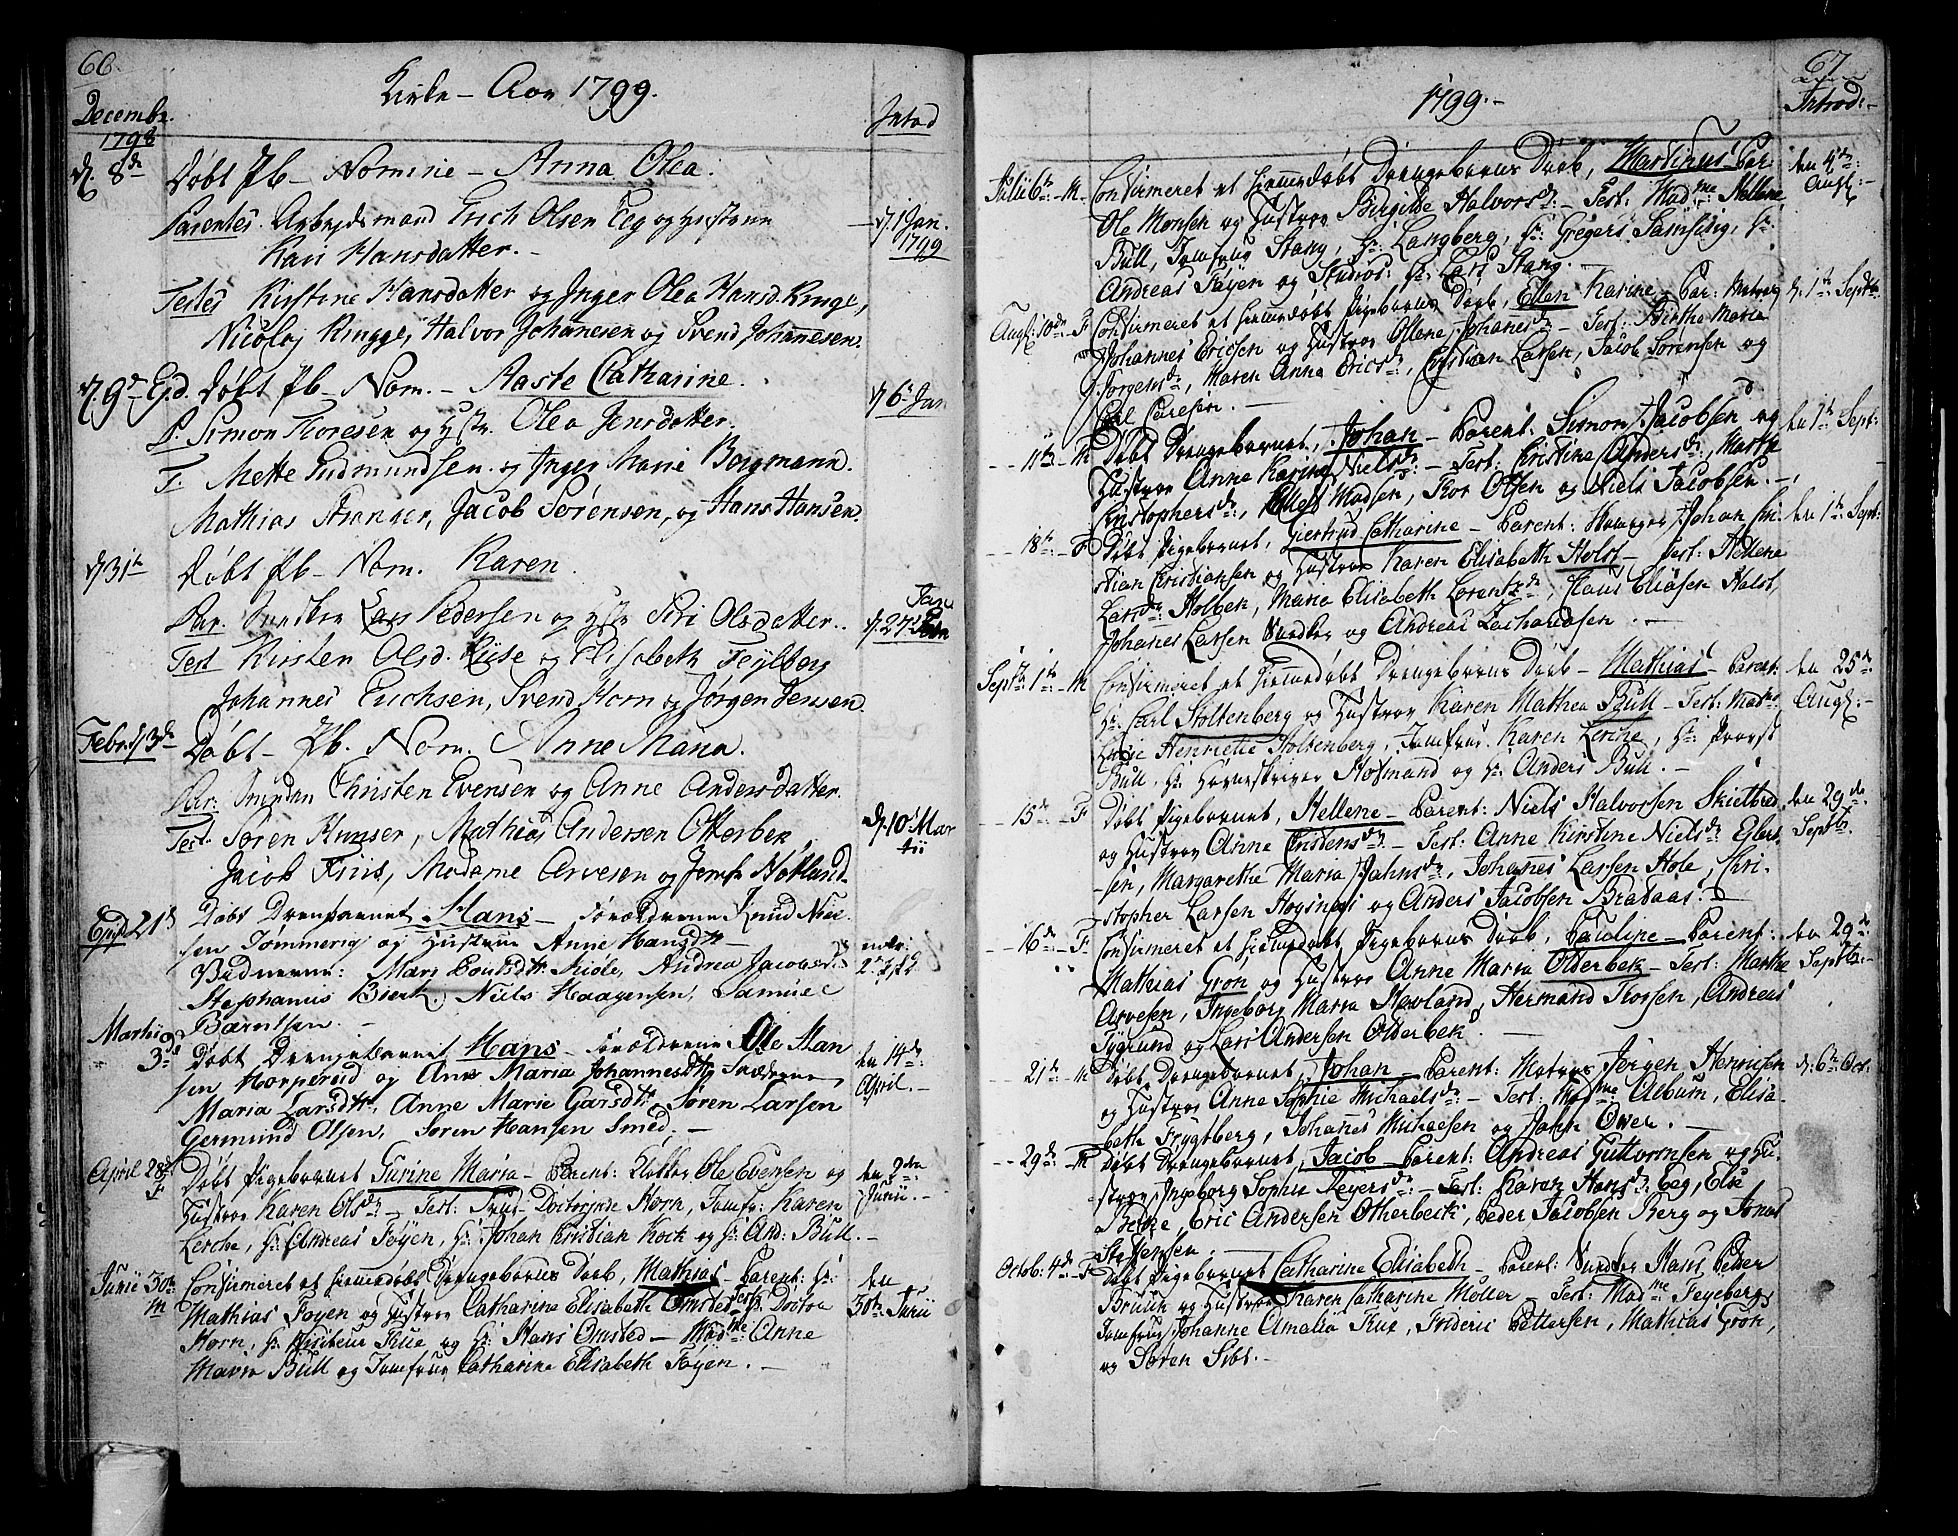 66.
Kirke – Aar 1799.
Decembr.
1798
Introd
d. 8de Døbt Pb – Nomine – Anna Olea.
Parentes. Arbeydsmand Erich Olsen Eeg og Hustrue
d. 1 Jan. 1799
Kari Hansdatter. –
Testes Kirstine Hansdatter og Inger Olea Hansd. Ringe,
Nicolaj Ringge, Halvor Johanesen og Svend Johannesen.
d. 9de Ejd. Døbt Pb – Nom. – Aaste Catharine.
d. 6te Jan
P. Simon Thoresen og Hstr. Olea Jensdatter.
T. Mette Gudmundsen og Inger Marie Borgmann.
Mathias Stranger, Jacob Sørensen, og Hans Hansen.
d. 31te Døbt Pb – Nom. Karen.
Par. Snedker Lars Pedersen og Hstr Siri Olsdatter.
d. 27de Janu
Test Kirsten Olsd. Riise og Elisabeth Feylberg
Johannes Erichsen, Svend Horn og Jørgen Jensen.
Febr. d. 3de Døbt – Pb. Nom. Anne Maria.
Par: Christen Evensen og Anne Andersdatter.
Test. Søren Hansen, Mathias Andersen Otterbek,
d. 10de Mar
tii
Jacob Friis, Madame Arvesen og Jomfr Hofland –
Ejusd 21de Døbt Drengebarnet Hans – Forældrene Knud Niel-
sen Tømmerög og Hustrue Anne Hansdtr –
Vidnerne: Mari Poulsdtr. Kiøle, Andrea Jacobsd.
Stephanus Bierk, Niels Haagensen, Samuel
Bærntsen. –
Martii
3de Døbt Drengebarnet Hans – Forældrene Ole Han
den 14de
April. –
sen Horperud og Ane Maria Johannesdtr Fadderne
Maria Larsdtr, Anne Marie Garsdtr. Søren Larsen
Germund Olsen, Søren Hansen Smed. –
April 28de
F
Døbt Pigebarnet Turine Maria – Parent: Klokker Ole Evensen og
den 9de
Junii. –
Hustrue Karen Olsdr – Test: Frue Doctorinde Horn, Jomfr: Karen
Lerche, Hr: Andreas Føyen, Hr: Johan Cristian Kock og Hr: And: Bull. –
Junii 30te
M
Confirmeret et hiemmedøbt Drengebarns Daab, Mathias – Parent: Hr:
den
30te Junii
Mathias Føyen og Hustrue Catharine Elisabeth Omsted – Test: Hr. Doctor
Horn, Hr: Visiteur Thue, og Hr: Hans Omsted – Madme Anne
Maria Bull og Jomfrue Catharine Elisabeth Føyen. –
67
1799. –
Introd: –
Julii 6te – M – Confirmeret et hiemmedøbt Drengebarns Daab, Martinus – Par:
den 4de
Augt: –
Ole Monsen og Hustroe Birgithe Halvorsdr: – Test: Madme Hellene
Bull, Jomfrue Stang, Hr: Langberg, Hr: Gregers Samsing, Hr:
Andreas Føyen og Studios: Hr: Lars Stang. –
Augt: 10de – F Confirmeret et hiemmedøbt Pigebarns Daab, Ellen Karine – Par: Matros
d: 1te Septbr
Johannes Ericsen og Hustroe Ollene Johanesdr – Test: Birthe Maria
Jørgensdr:, Maren Anna Ericsdr, Cristian Larsen, Jacob Sørensen og
Poul Paresen. –
– – 11te – M Døbt Drengebarnet, Johan – Parent: Simon Jacobsen og
den 1te Sept:
Hustroe Anne Karine Nielsdr: – Test: Cristine Andersdr:, Marthe
Cristophersdr:, Ellef Madsen, Thor Olsen og Niels Jacobsen. –
– – 18te – F Døbt Pigebarnet, Giertrud Catharine – Parent: Johan Chri-
den 1te Sept:
stian Cristiansen og Hustroe Karen Elisabeth Holst – Test: Hellene
Larsdr Holbek, Maria Elisabeth Lorentzdr, Claus Eliasen Holst,
Johanes Larsen Snedker og Andreas Zachariasen. –
Septbr 1te – M Confirmeret et hiemmedøbt Drengebarns Daab – Mathias – Parent:
den 25de
Augt: –
Hr: Carl Stoltenberg og Hustroe Karen Mathea Bull – Test: Madme
Henriette Stoltenberg, Jomfrue Karen Lerche, Hr: Provst
Bull, Hr: Høveskriver Hofmand og Hr: Anders Bull. –
– – 15de – F Døbt Pigebarnet, Hellene – Parent: Niels Halvorsen Skietbred
den 29de
Septbr.
og Hustroe Anne Cristensdr – Test: Anne Kirstine Nielsdr Ejlert-
sen, Margarethe Maria Jahnsdr, Johannes Larsen Hole, Chri-
stopher Larsen Høgsnes og Anders Jacobsen Bradaas.
– – 16de – F – Confirmeret et hiemmedøbt Pigebarns Daab, Pauline – Parent:
den 29de
Septbr: –
Mathias Gron og Hustroe Anne Maria Otterbek – Test: Marthe
Arvesen, Ingeborg Maria Hawland, Hermand Thorsen, Andreas
Fyglund og Lars Andersen Otterbek. –
– – 21de – M Døbt Drengebarnet, Johan – Parent: Matros Jørgen Henricsen
d: 6te Oct:
og Hustroe Anne Sophie Michaelsdr: – Test: Madme Alburn, Elisa-
beth Frygtberg, Johanes Michaelsen og John Over. –
– – 29de – M Døbt Drengebarnet, Jacob – Parent: Andreas Guttormsen og Hu-
stroe Ingeborg Sophie Meyersdr: – Test: Karen Hansdr: Eeg, Else
Beine, Eric Andersen Otherbeck, Peder Jacobsen Berg og Jonas
Steffensen.
Octob: 4de – F Døbt Pigebarnet Catharine Elisabeth – Parent: Snedker Hans Peder
Bruun og Hustroe Karen Catharine Møller – Test: Madme Feyeberg,
Jomfrue Johanne Amalia Kux, Frideric Pettersen, Mathias Gron,
og Søren Sibs. –